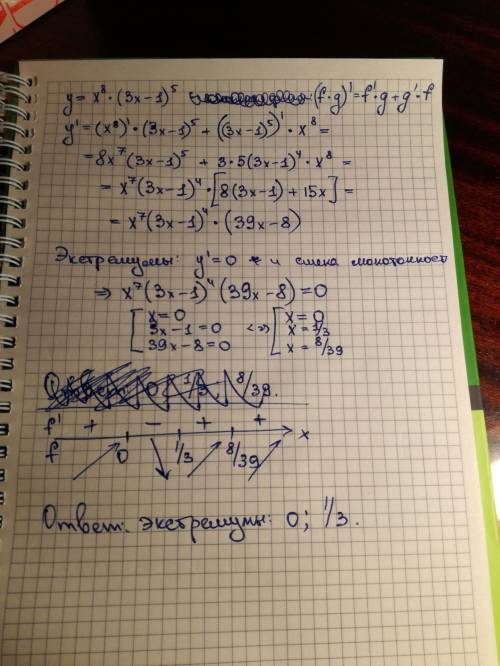 y = x⁸ · (3x-1)⁵ (f·g)' = f'·g + g'·f
y' = (x⁸)' · (3x-1)⁵ + ((3x-1)⁵)' · x⁸ =
= 8x⁷(3x-1)⁵ + 3·5(3x-1)⁴ · x⁸ =
= x⁷(3x-1)⁴ · [8(3x-1) + 15x] =
= x⁷(3x-1)⁴ · (39x-8)
Экстремумы: y'=0 и смена монотонност
⇒ x⁷(3x-1)⁴(39x-8) = 0
[x=0 3x-1=0 39x-8=0 <=> [x=0 x=1/3 x=8/39
0 1/3 8/39.
f' + - + +
f 0 1/3 8/39 x
Ответ: экстремумы: 0; 1/3.